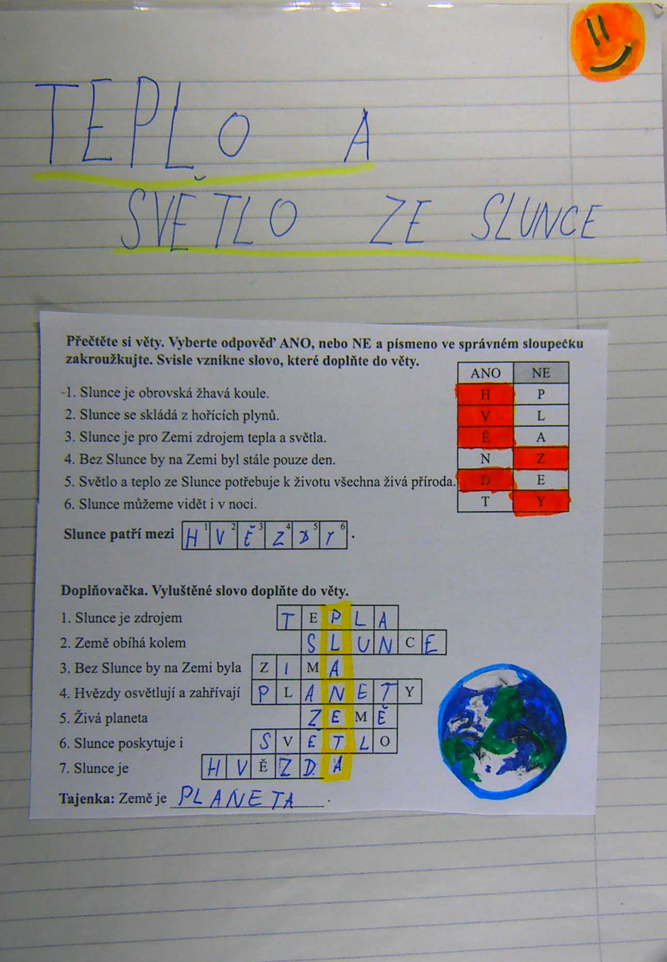 TEPLO A
SVĚTLO ZE SLUNCE
Přečtěte si věty. Vyberte odpověď ANO, nebo NE a písmeno ve správném sloupečku
zakroužkujte. Svisle vznikne slovo, které doplňte do věty.
ANO NE
1. Slunce je obrovská žhavá koule. H P
2. Slunce se skládá z hořících plynů. V L
3. Slunce je pro Zemi zdrojem tepla a světla. Ě A
4. Bez Slunce by na Zemi byl stále pouze den. N Z
5. Světlo a teplo ze Slunce potřebuje k životu všechna živá příroda. D E
6. Slunce můžeme vidět i v noci. T Y
Slunce patří mezi H1 V2 Ě3 Z4 D5 Y6 .
Doplňovačka. Vyluštěné slovo doplňte do věty.
1. Slunce je zdrojem T E P L A
2. Země obíhá kolem S L U N C E
3. Bez Slunce by na Zemi byla Z I M A
4. Hvězdy osvětlují a zahřívají P L A N E T Y
5. Živá planeta Z E M Ě
6. Slunce poskytuje i S V Ě T L O
7. Slunce je H V Ě Z D A
Tajenka: Země je PLANETA .